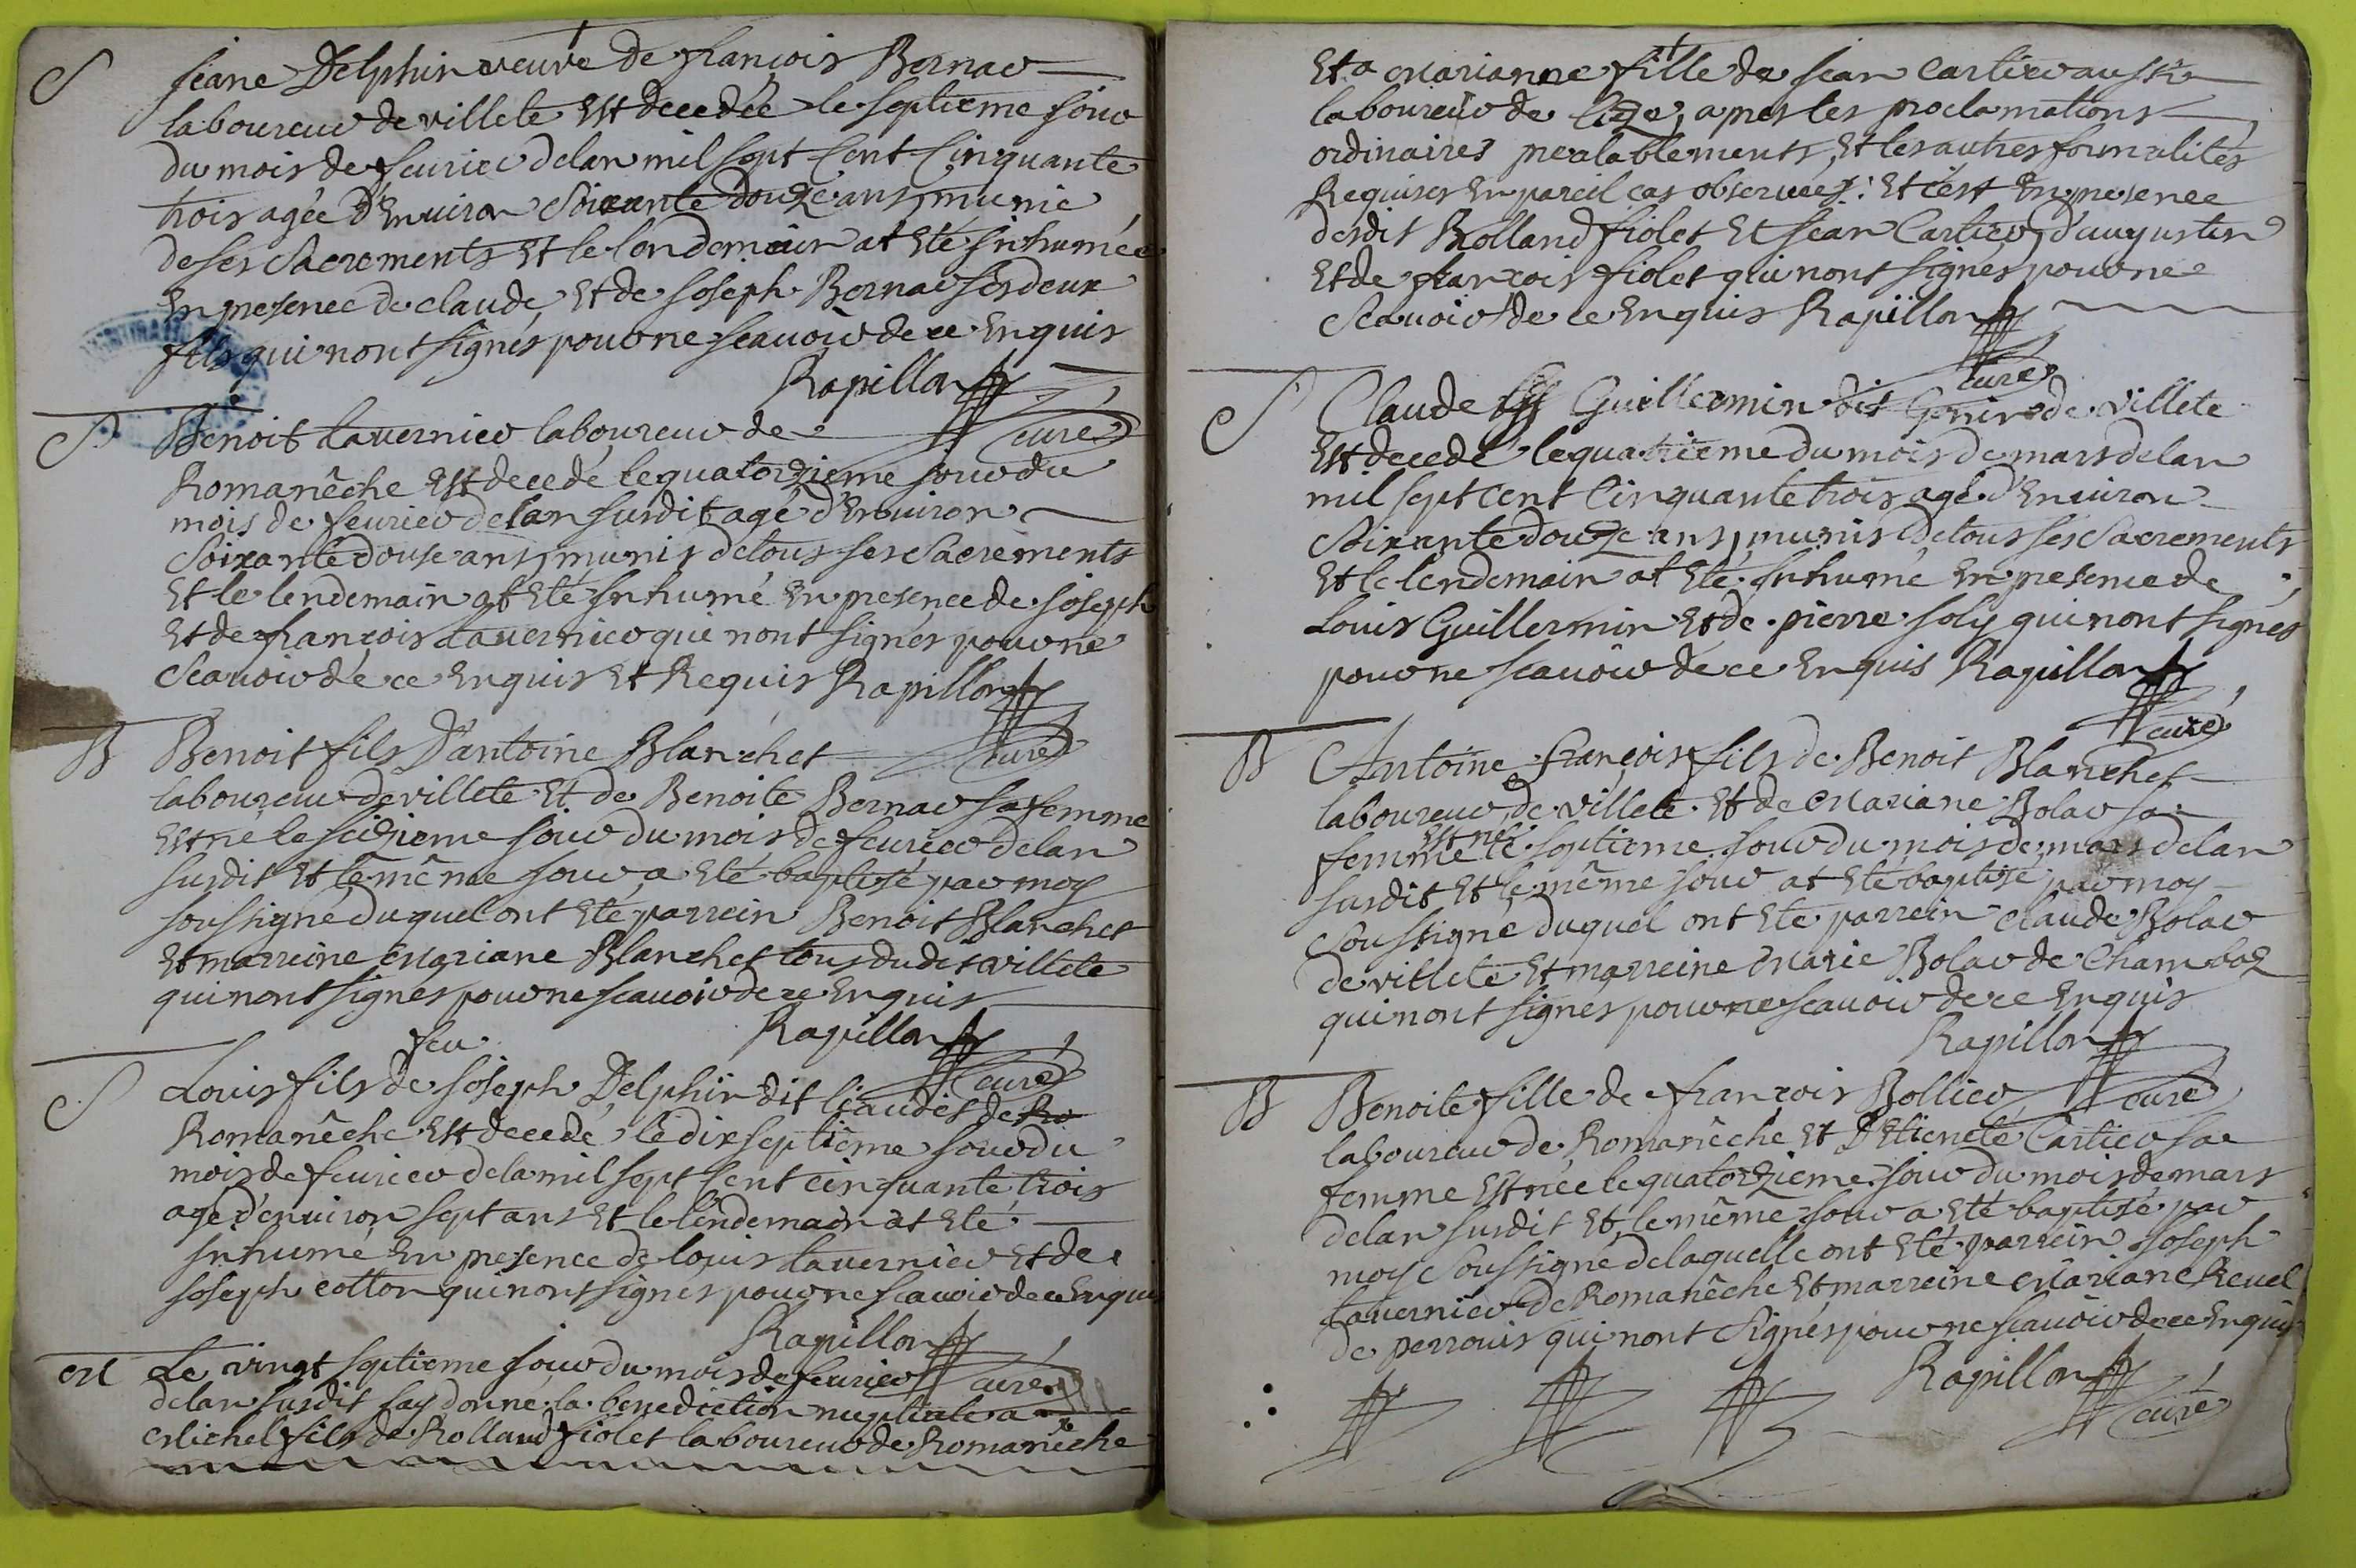 S
Jeane Delphin veuve de françois Bernar
laboureur de villete Est decedée le septieme jour
du mois de fevrier delan mil sept Cent Cinquante
trois agée d'Environ Soixante douze ans, munie
de ses Sacrements Et le londemain at Eté Inhumée
En presence de claude, Et de Joseph Bernar ses deux
fils qui n'ont signés pour ne scavoir de ce Enquis
Rapillon
curé
S
Benoit tavernier laboureur de
Romanêche Est decedé le quatorzieme jour du
mois de fevrier de lan susdit agé d'Environ
Soixante douse ans, munis de tous ses Sacrements
Et le lendemain at Eté Inhumé En presence de Joseph
Et de françois tavernier qui nont signés pour ne
Scavoir de ce Enquis Et Requis Rapillon
curé
B
Benoit fils D'antoine Blanchet
laboureur de villete Et de Benoite Bernar sa femme
Est né le seizieme jour du mois de fevrier delan
susdit Et le même jour a Eté baptisé par moy
soussigné duquel ont Eté parrein Benoit Blanchet
Et marreine Mariane Blanchet tous dudit villete
qui nont signés pour ne scavoir de ce Enquis
Rapillon
curé
feu
S
Louis fils de Joseph Delphin dit liaudet de Ro
Romanêche Est decedé, le dix septieme jour du
mois de fevrier dela mil sept Cent cinquante trois
agé d'environ sept ans Et le lendemain at Eté
Inhumé En presence de louis tavernier Et de
Joseph cotton qui nont signés pour ne scavoir de ce Enquis
Rapillon
curé
M
Le vingt septieme jour du mois de fevrier
delan susdit jay donné la benediction nuptiale a
Michel fils de Rolland fiolet laboureur de Romanêche
Et a Marianne fille de Jean Cartier aussi
laboureur de lize, apres les proclamations
ordinaires prealablements, Et les autres formalités
Requises En pareil cas observées: Et c'est En presence
desdit Rolland fiolet Et Jean Cartier, d'augustin
Et de françois fiolet qui nont signés pour ne
Scavoir de ce Enquis Rapillon
curé
S
Claude Guillermin dit Genin de Villete
Est decedé le quatrieme du mois de mars delan
mil sept Cent Cinquante trois agé d'Environ
Soixante douze ans, munis de tous ses Sacrements
Et le lendemain at Eté Inhumé En presence de
Louis Guillermin Et de pierre Joly qui nont signés
pour ne scavoir de ce Enquis Rapillon
curé
B
Antoine françois fils de Benoit Blanchet
laboureur de Villete Et de Mariane Bolar sa
Est né
femme le septieme jour du mois de mars delan
susdit Et le même jour at Eté baptisé par moy
Soussigné duquel ont Eté parrein Claude Bolar
de villete Et marreine Marie Bolar de Chamboz
qui nont signés pour ne scavoir de ce Enquis
Rapillon
curé
B
Benoite fille de françois Bollier
laboureur de Romanêche Et D'Etienete Cartier sa
femme Est née le quatorzieme jour du mois de mars
delan susdit Et le même jour a Eté baptisé par
moy Soussigné delaquelle ont Eté parrein Joseph
tavernier de Romanêche Et marreine Mariane Revel
de perrouis qui nont Signés pour ne scavoir de ce Enquis
Rapillon
curé